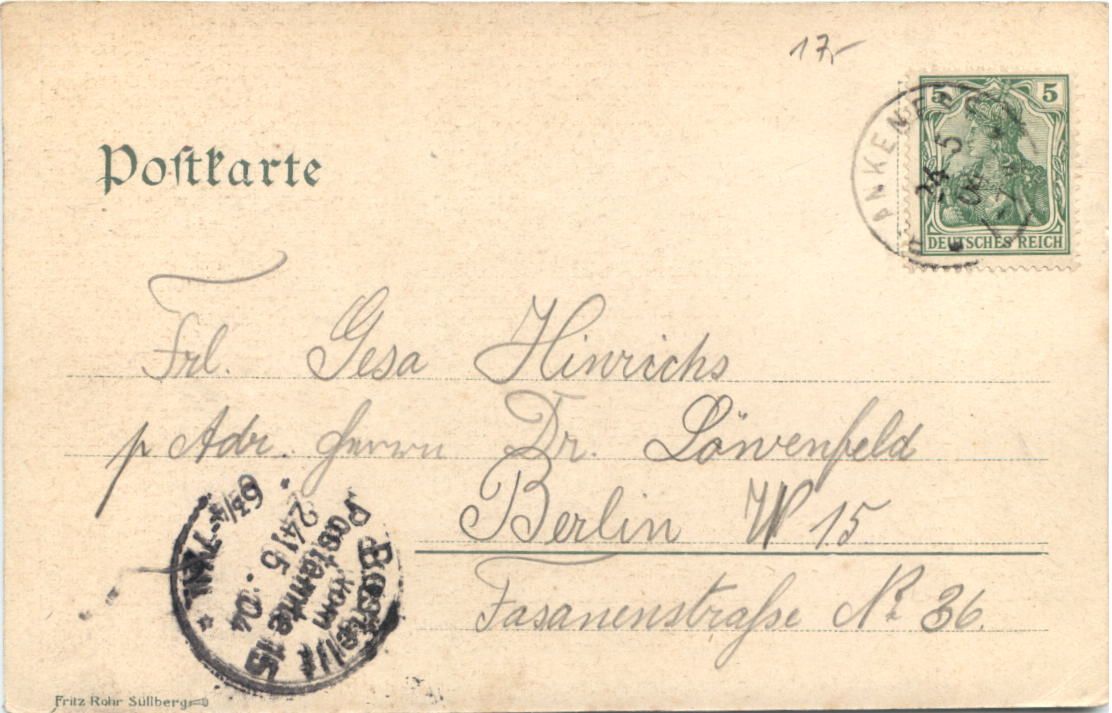 17,-
5 5
DEUTSCHES REICH
ANKENE
24 5
04
Poſtkarte
Frl. Gesa Hinrichs
p Adr. Herrn Dr. Löwenfeld
Berlin W 15
Fasanenstraße No 36.
Bestellt
vom
Postamte 15
24/5.04
6¾-7¾N.
Fritz Rohr Süllberg